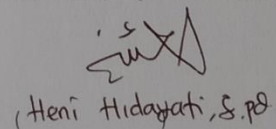 Heni Hidayati, S.pd